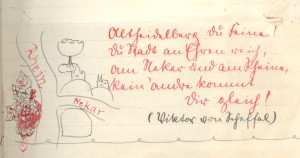 Altheidelberg du Feine!
Du Stadt an Ehren reich,
am Nekar und am Rheine,
kein' andre kommt
Dir gleich!
(Viktor von Scheffel)
Rhein
Nekar